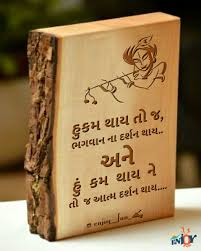 હુકમ થાય તો જ,
ભગવાન ના દર્શન થાય..
અને
હું કમ થાય ને
તો જ આત્મ દર્શન થાય....
@ enjoy_fun_
ENJOY